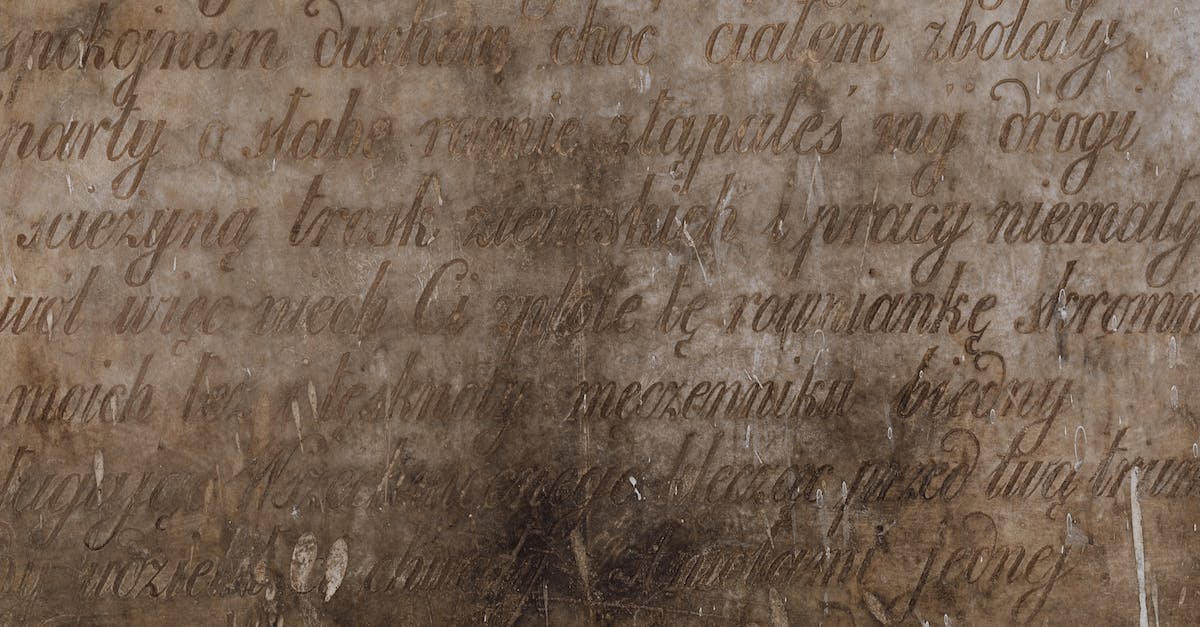 spokojnem duchem choć ciałem zbolały
party o słabe ramie złąpałeś mój drogi
ścieżyną trosk ziemskich i pracy niemały
wól więc niech Ci zplotę tę rowniankę skromn
moich łez i tęsknoty meczenniku biedny
Wszechmocnego klecząc przed twą trum
udzielił Ci chwały jednej